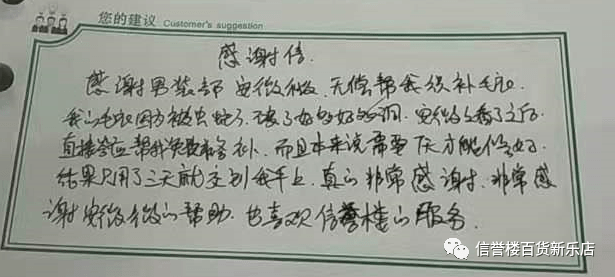 您的建议 Customer's suggestion
感谢信
感谢男装部 安微微 无偿帮我织补毛衣
我的毛衣因为被虫蛀了 破了好多好多的洞 安微微看了之后
直接答应帮我免费织补 而且本来说需要 天才能修好
结果只用了三天就送到我手上 真的非常感谢 非常感
谢安微微的帮助 也喜欢信誉楼的服务
信誉楼百货新乐店